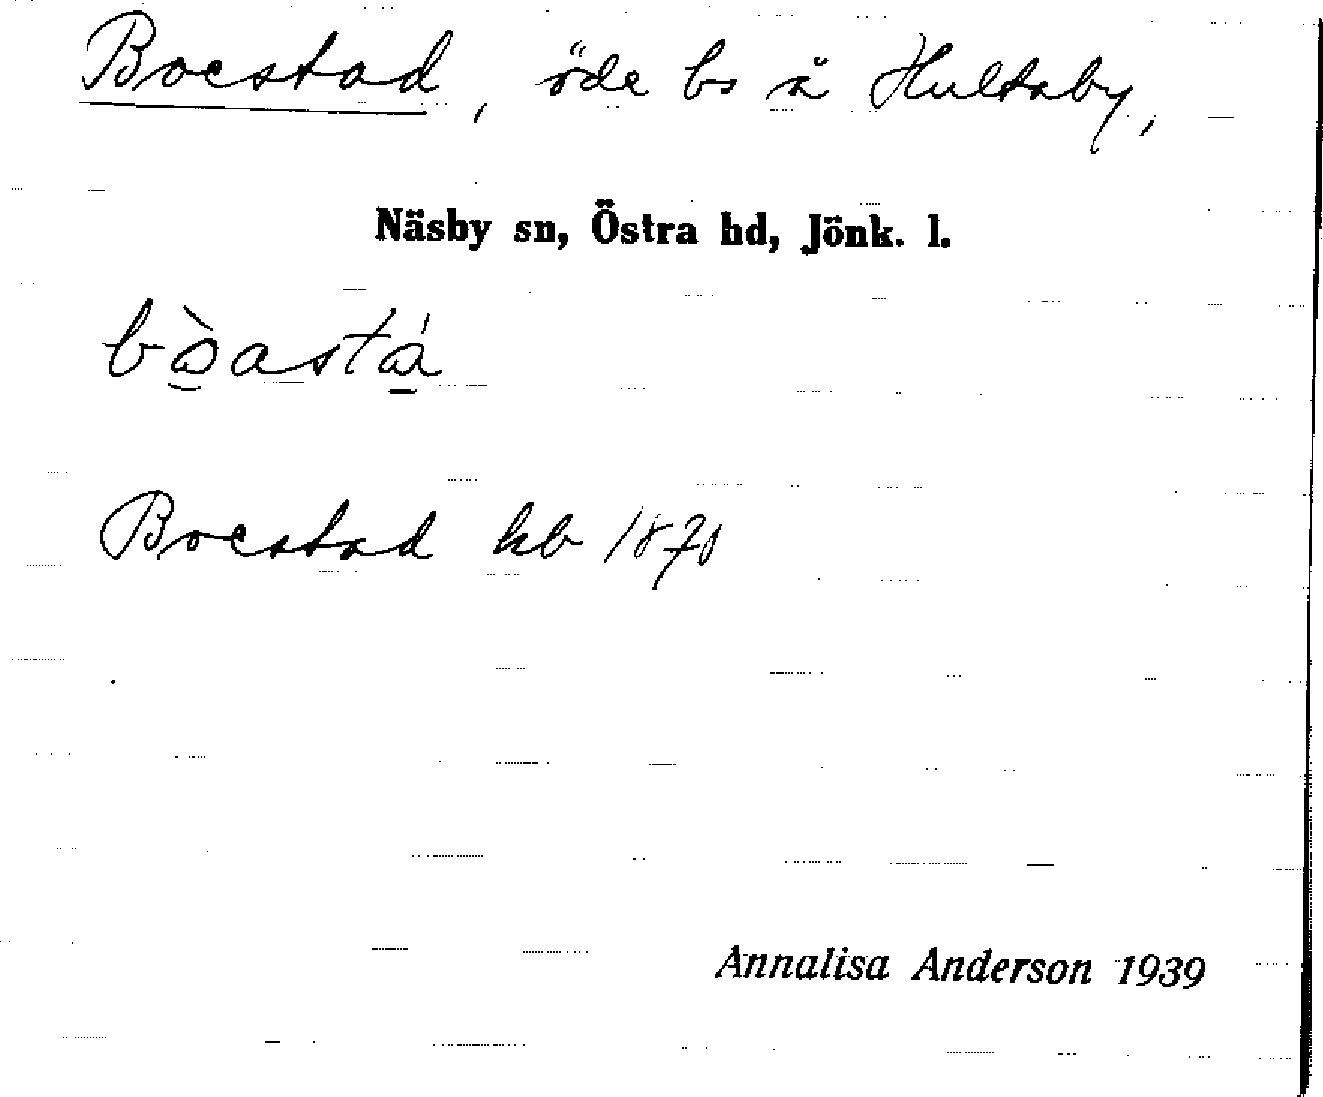 Boestad, öde bs å Hultaby,
Näsby sn, Östra hd, Jönk. l.
Boestad hb 1870
Annalisa Anderson 1939